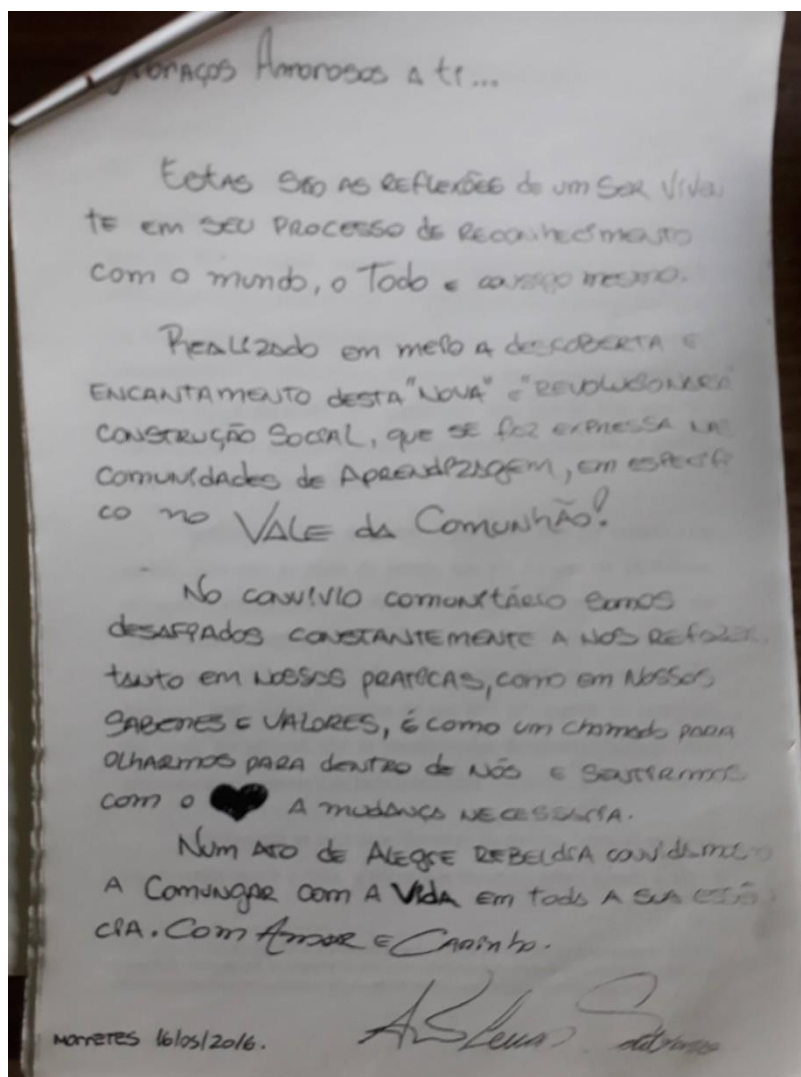 Abraços Amorosos a ti...
Estas são as reflexões de um ser viven
te em seu processo de reconhecimento
com o mundo, o Todo e consigo mesmo.
Realizado em meio a descoberta e
encantamento desta "nova" e "revolucionária"
construção social, que se faz expressa nas
comunidades de aprendizagem, em específi
co no Vale da Comunhão!
No convívio comunitário somos
desafiados constantemente a nos refazer
tanto em nossas praticas, como em nossos
saberes e valores, é como um chamado para
olharmos para dentro de nós e sentirmos
com o ♥ a mudança necessaria.
Num ato de alegre rebeldia convidamos
a Comungar com a Vida em toda a sua essên
cia. Com Amor e Carinho.
Morretes 16/05/2016.